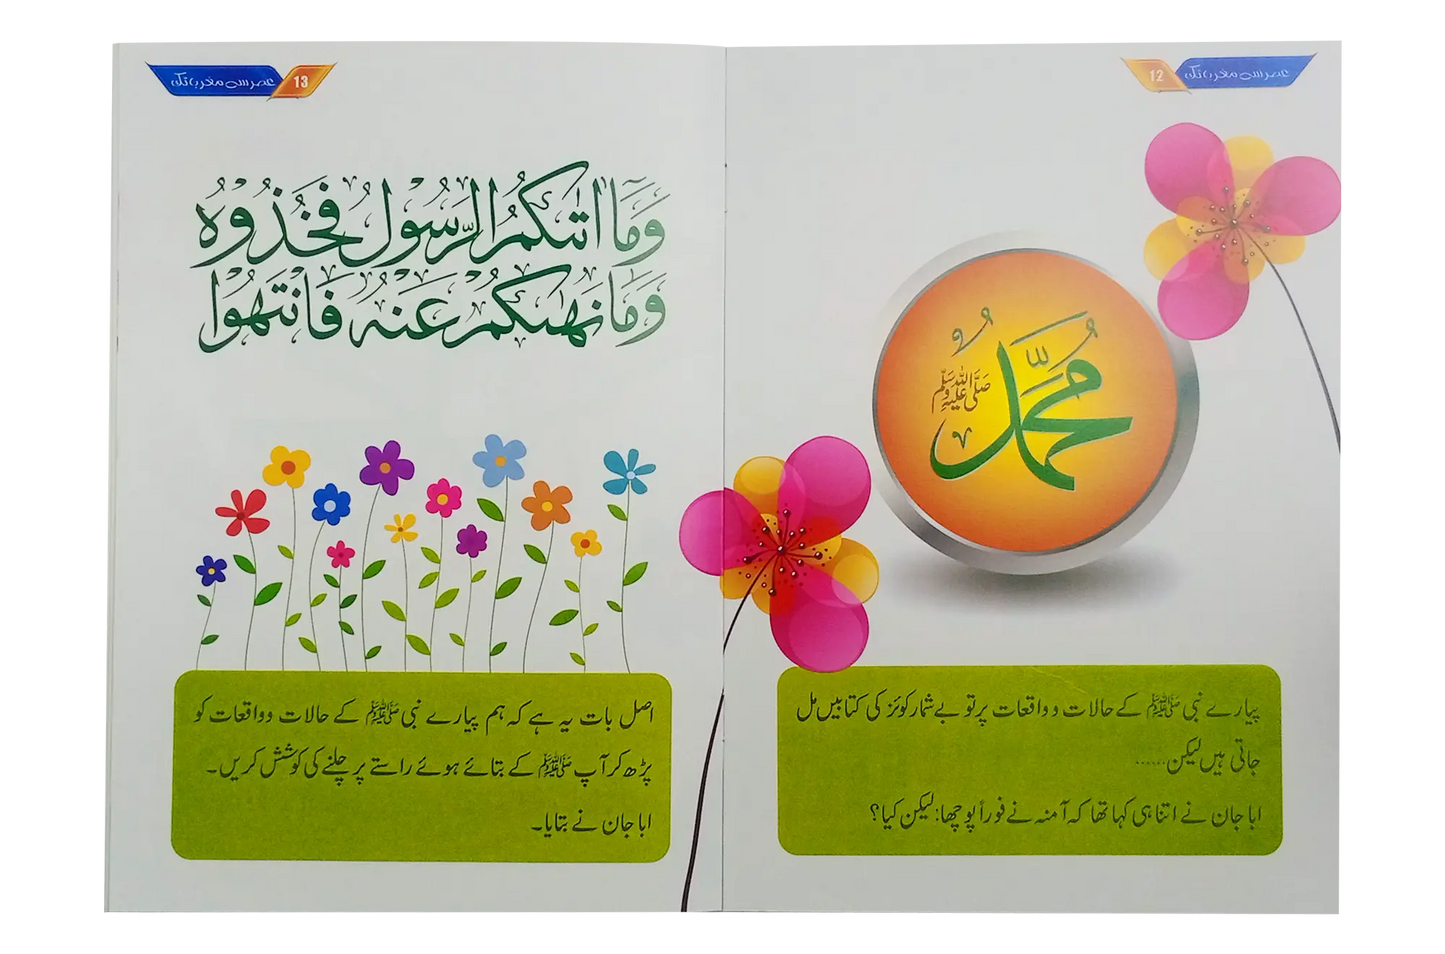 عصر سے مغرب تک
12
محمد
صلی اللہ علیہ وسلم
پیارے نبی ﷺ کے حالات و واقعات پر تو بے شمار کوئز کی کتابیں مل
جاتی ہیں لیکن......
ابا جان نے اتنا ہی کہا تھا کہ آمنہ نے فوراً پوچھا: لیکن کیا؟
عصر سے مغرب تک
13
وَمَا اٰتٰىكُمُ الرَّسُوْلُ فَخُذُوْهُ
وَمَا نَهٰىكُمْ عَنْهُ فَانْتَهُوْا
اصل بات یہ ہے کہ ہم پیارے نبی ﷺ کے حالات و واقعات کو
پڑھ کر آپ ﷺ کے بتائے ہوئے راستے پر چلنے کی کوشش کریں۔
ابا جان نے بتایا۔